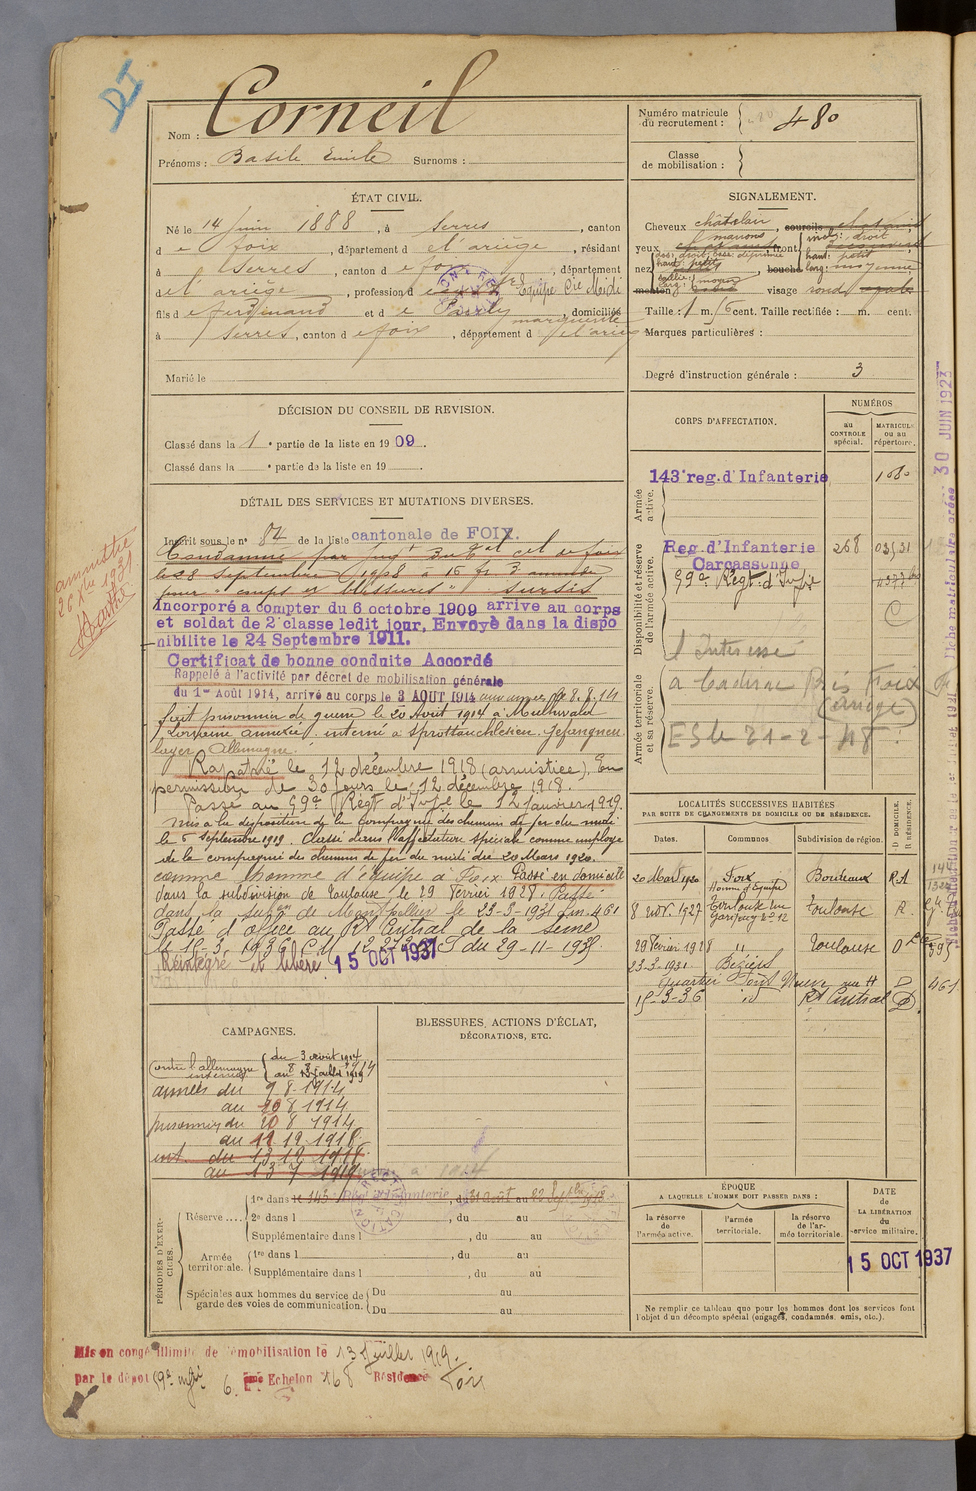 DI
Nom : Corneil
Prénoms : Basile Emile Surnoms :
Numéro matricule
du recrutement : 480
Classe
de mobilisation :
ÉTAT CIVIL.
Né le 14 Juin 1888, à Serres, canton
de foix, département de l'ariège, résidant
à Serres, canton de foix, département
de l'ariège, profession d Equipe Cie Midi
fils de ferdinand et de Pauly marguerite, domiciliés
à Serres, canton de foix, département de l'ariège
Marié le
SIGNALEMENT.
Cheveux châtain, sourcils
yeux marrons, front incl: droit
haut: petit
nez dos: droit, base: déprimée
haut: petite
saillie:
larg: moyen
bouche larg: moyenne
menton visage rond ovale
Taille : 1 m. 56 cent. Taille rectifiée : m. cent.
Marques particulières :
Degré d'instruction générale : 3
DÉCISION DU CONSEIL DE REVISION.
Classé dans la 1e partie de la liste en 1909.
Classé dans la e partie de la liste en 19 .
CORPS D'AFFECTATION.
NUMÉROS
au
CONTROLE
spécial.
MATRICULE
ou au
répertoire.
Armée
active.
143e reg. d'Infanterie
1080
Disponibilité et réserve
de l'armée active.
Reg. d'Infanterie 268 03531
Carcassonne
99e Régt d'Infie
Armée territoriale
et sa réserve.
l'Interessé
a Cadirac Bis Foix
(ariège)
ES le 21-2-48
DÉTAIL DES SERVICES ET MUTATIONS DIVERSES.
Inscrit sous le n° 84 de la liste cantonale de FOIX.
Condamné par jugt du tal cel de foix
le 28 septembre 1908 à 16 fr d'amende
pour "coups et blessures" sursis
Incorporé a compter du 6 octobre 1909 arrive au corps
et soldat de 2e classe ledit jour, Envoyé dans la dispo
nibilite le 24 Septembre 1911.
Certificat de bonne conduite Accordé
Rappelé à l'activité par décret de mobilisation générale
du 1er Août 1914, arrivé au corps le 3 AOUT 1914 aux armées le 8.8.14
fait prisonnier de guerre le 20 Août 1914 à
Lorraine annexée interné à Sprottauchlesien Gefangnen
lager Allemagne.
Rapatrié le 12 décembre 1918 (armistice), En
permission de 30 jours le 12 décembre 1918.
Passé au 99e Régt d'Infie le 12 janvier 1919.
Mis a la disposition de la Compagnie des chemins de fer du midi
le 5 Septembre 1919. Classé dans l'affectation spéciale comme employé
de la compagnie des chemins de fer du midi du 20 Mars 1920.
comme homme d'équipe à Foix Passé en domicile
dans la subdivision de Toulouse le 29 Fevrier 1928. Passé
dans la subon de Montpellier le 23-3-1931 Lm. 461
Passé d'office au Rt Central de la Seine
le 15-3-1936 du 29-11-1935
Réintégré et libéré 15 OCT 1937
amnistie
26 Xbre 1931
LOCALITÉS SUCCESSIVES HABITÉES
PAR SUITE DE CHANGEMENTS DE DOMICILE OU DE RÉSIDENCE.
Dates. Communes Subdivision de région. D DOMICILE. R RÉSIDENCE.
20 Mars 1920 Foix Bordeaux R.A
Homme d'Equipe
8 nov. 1927 Toulouse rue Toulouse R.
n° 12
29 Fevrier 1928 " Toulouse D
23-3-1931 Béziers
Quartier Pont Neuve D 461
15-3-36 id Rt Central D.
CAMPAGNES.
Contre l'allemagne du 3 Août 1914
intérieur au 8 8 1914
armées du 9-8-1914
au 20 8 1914
prisonnier du 20 8 1914
au 11 12 1918
int. du 13 12 1918
au 13 7 1919
BLESSURES, ACTIONS D'ÉCLAT,
DÉCORATIONS, ETC.
PÉRIODES D'EXERCICES.
Réserve ....
1re dans le 143e Régt d'Infanterie, du 31 août au 22 Septbre 1913
2e dans l , du au
Supplémentaire dans l , du au
Armée
territoriale.
1re dans l , du au
Supplémentaire dans l , du au
Spéciales aux hommes du service de
garde des voies de communication.
Du au
Du au
ÉPOQUE
A LAQUELLE L'HOMME DOIT PASSER DANS :
la réserve
de
l'armée active.
l'armée
territoriale.
la réserve
de l'ar-
mée territoriale.
DATE
de
LA LIBÉRATION
du
service militaire.
15 OCT 1937
Ne remplir ce tableau que pour les hommes dont les services font
l'objet d'un décompte spécial (engagés, condamnés, omis, etc.).
Mis en congé illimité de démobilisation le 13 Juillet 1919.
par le dépôt 59e 6. ème Echelon 168 Résidence Foix
30 JUIN 1923
Fiche matriculaire créée